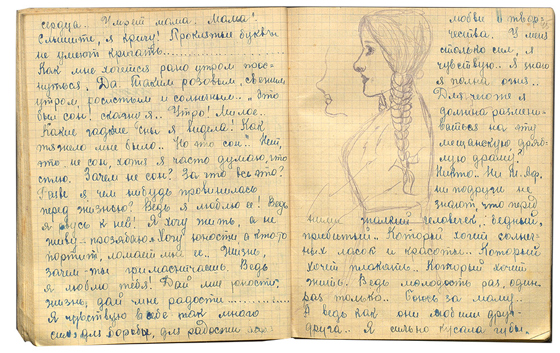 сердца. Умрёт мама. Мама!
Слышите, я кричу! Проклятые буквы
не умеют кричать..................
Как мне хочется рано утром прос-
нуться. Да. Таким розовым, свежим
утром, росистым и солнечным.. "Это
был сон! скажу я.. Утро! Милое..
Какие гадкие сны я видела! Как
тяжело мне было.. Но это сон". Нет,
это не сон, хотя я часто думаю, что
сплю. Зачем не сон? За что всё это?
Разве я чем нибудь провинилась
перед жизнью? Ведь я люблю её! Ведь
я рвусь к ней! Я хочу жить, а не
живу - прозябаю. Хочу юности а кто-то
портит, ломает мне её.. Жизнь,
зачем ты
Ведь
я люблю тебя! Дай мне юность,
жизнь, дай мне радости..............
Я чувствую в себе так много
сил для борьбы, для радости
любви и творч-
чества. У меня
столько сил, я
чувствую. Я знаю
я полна огня..
Для чего же я
должна размени-
ваться на эту
мещанскую,
драму?
Никто. Ни
ни подруги не
знают, что перед
ними жалкий человечек, бедный,
прибитый.. Который хочет солнеч-
ных ласк и красоты.. Который
хочет плакать.. Который хочет
жить. Ведь молодость раз, один
раз только.. Боюсь за маму..
А ведь как они любили друг-
друга.. Я сильно кусала губы.